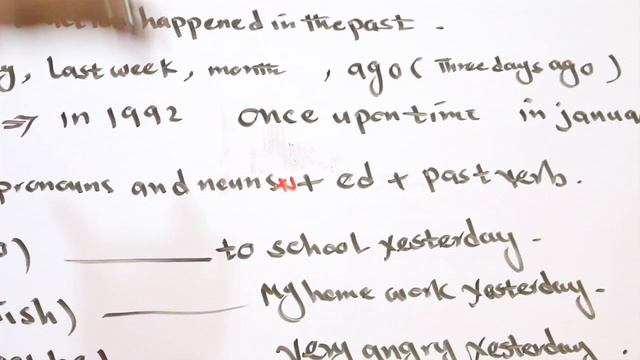 happened in the past .
y, last week, month , ago ( Three days ago )
⇒ in 1992 once upon time in janua
pronouns and nouns + ed + past verb.
) ______ to school yesterday.
ish) ______ My home work yesterday.
very angry yesterday .